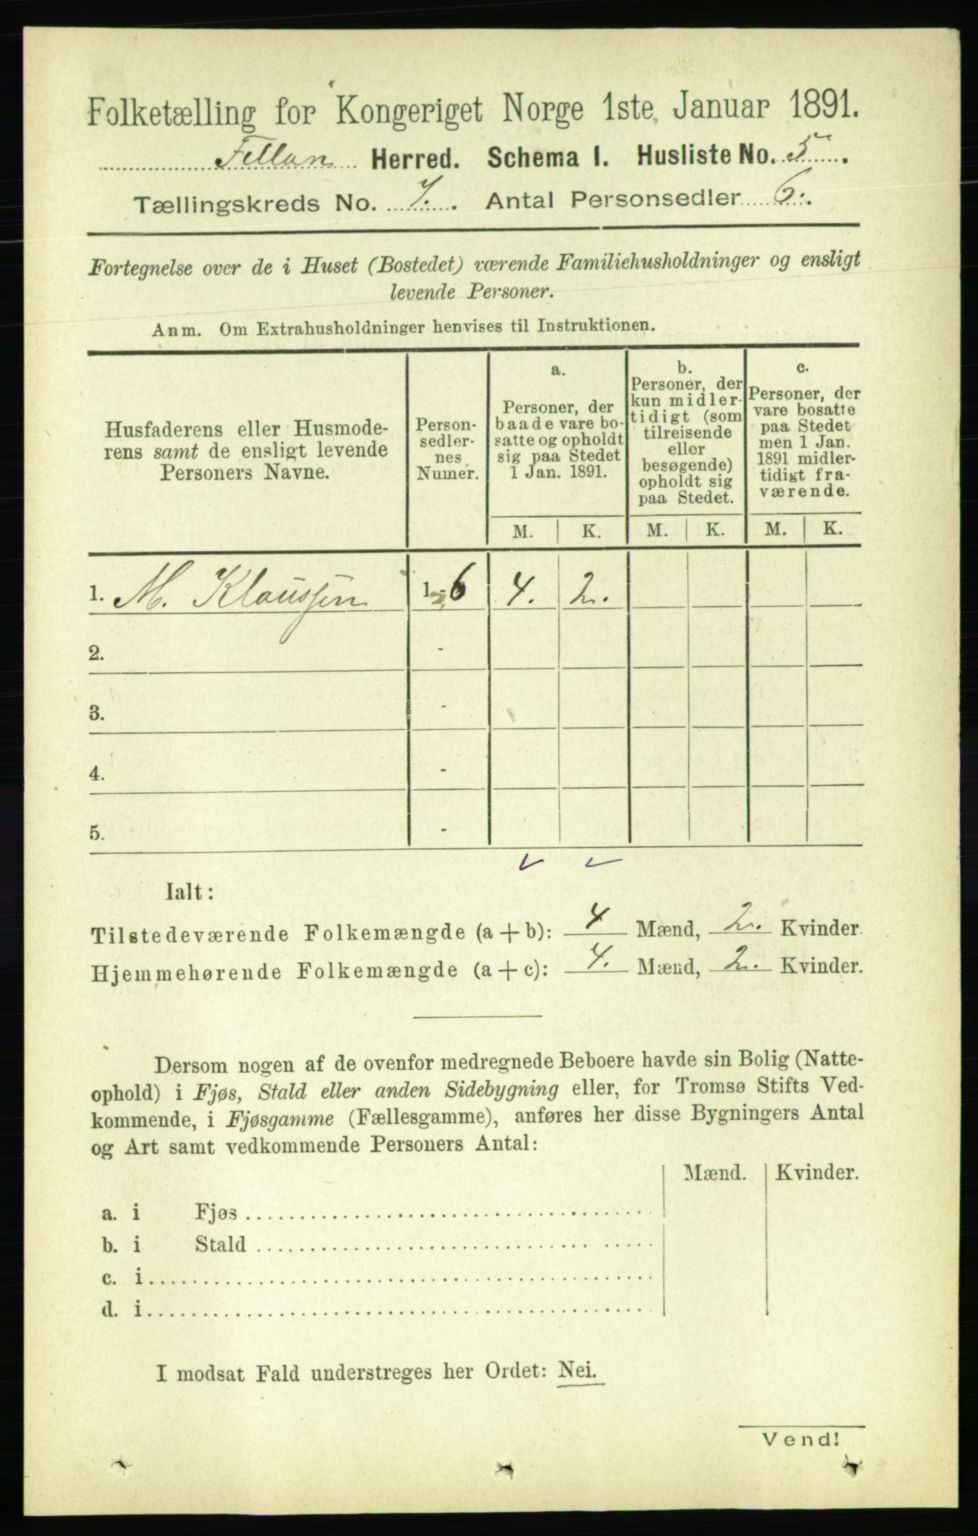 Folketælling for Kongeriget Norge 1ste Januar 1891.
Fillan Herred. Schema I. Husliste No. 5.
Tællingskreds No. 7. Antal Personsedler 6.
Fortegnelse over de i Huset (Bostedet) værende Familiehusholdninger og ensligt
levende Personer.
Anm. Om Extrahusholdninger henvises til Instruktionen.
Husfaderens eller Husmode-
rens samt de ensligt levende
Personers Navne.
Person-
sedler-
nes
Numer.
a.
Personer, der
baade vare bo-
satte og opholdt
sig paa Stedet
1 Jan. 1891.
b.
Personer, der
kun midler-
tidigt (som
tilreisende
eller
besøgende)
opholdt sig
paa Stedet.
c.
Personer, der
vare bosatte
paa Stedet
men 1 Jan.
1891 midler-
tidigt fra-
værende.
M. K. M. K. M. K.
1. M. Klaussen 1-6 4. 2.
2. -
3. -
4. -
5. -
Ialt:
Tilstedeværende Folkemængde (a+b): 4 Mænd, 2. Kvinder.
Hjemmehørende Folkemængde (a+c): 4. Mænd, 2. Kvinder.
Dersom nogen af de ovenfor medregnede Beboere havde sin Bolig (Natte-
ophold) i Fjøs, Stald eller anden Sidebygning eller, for Tromsø Stifts Ved-
kommende, i Fjøsgamme (Fællesgamme), anføres her disse Bygningers Antal
og Art samt vedkommende Personers Antal:
Mænd. Kvinder.
a. i Fjøs
b. i Stald
c. i
d. i
I modsat Fald understreges her Ordet: Nei.
Vend!